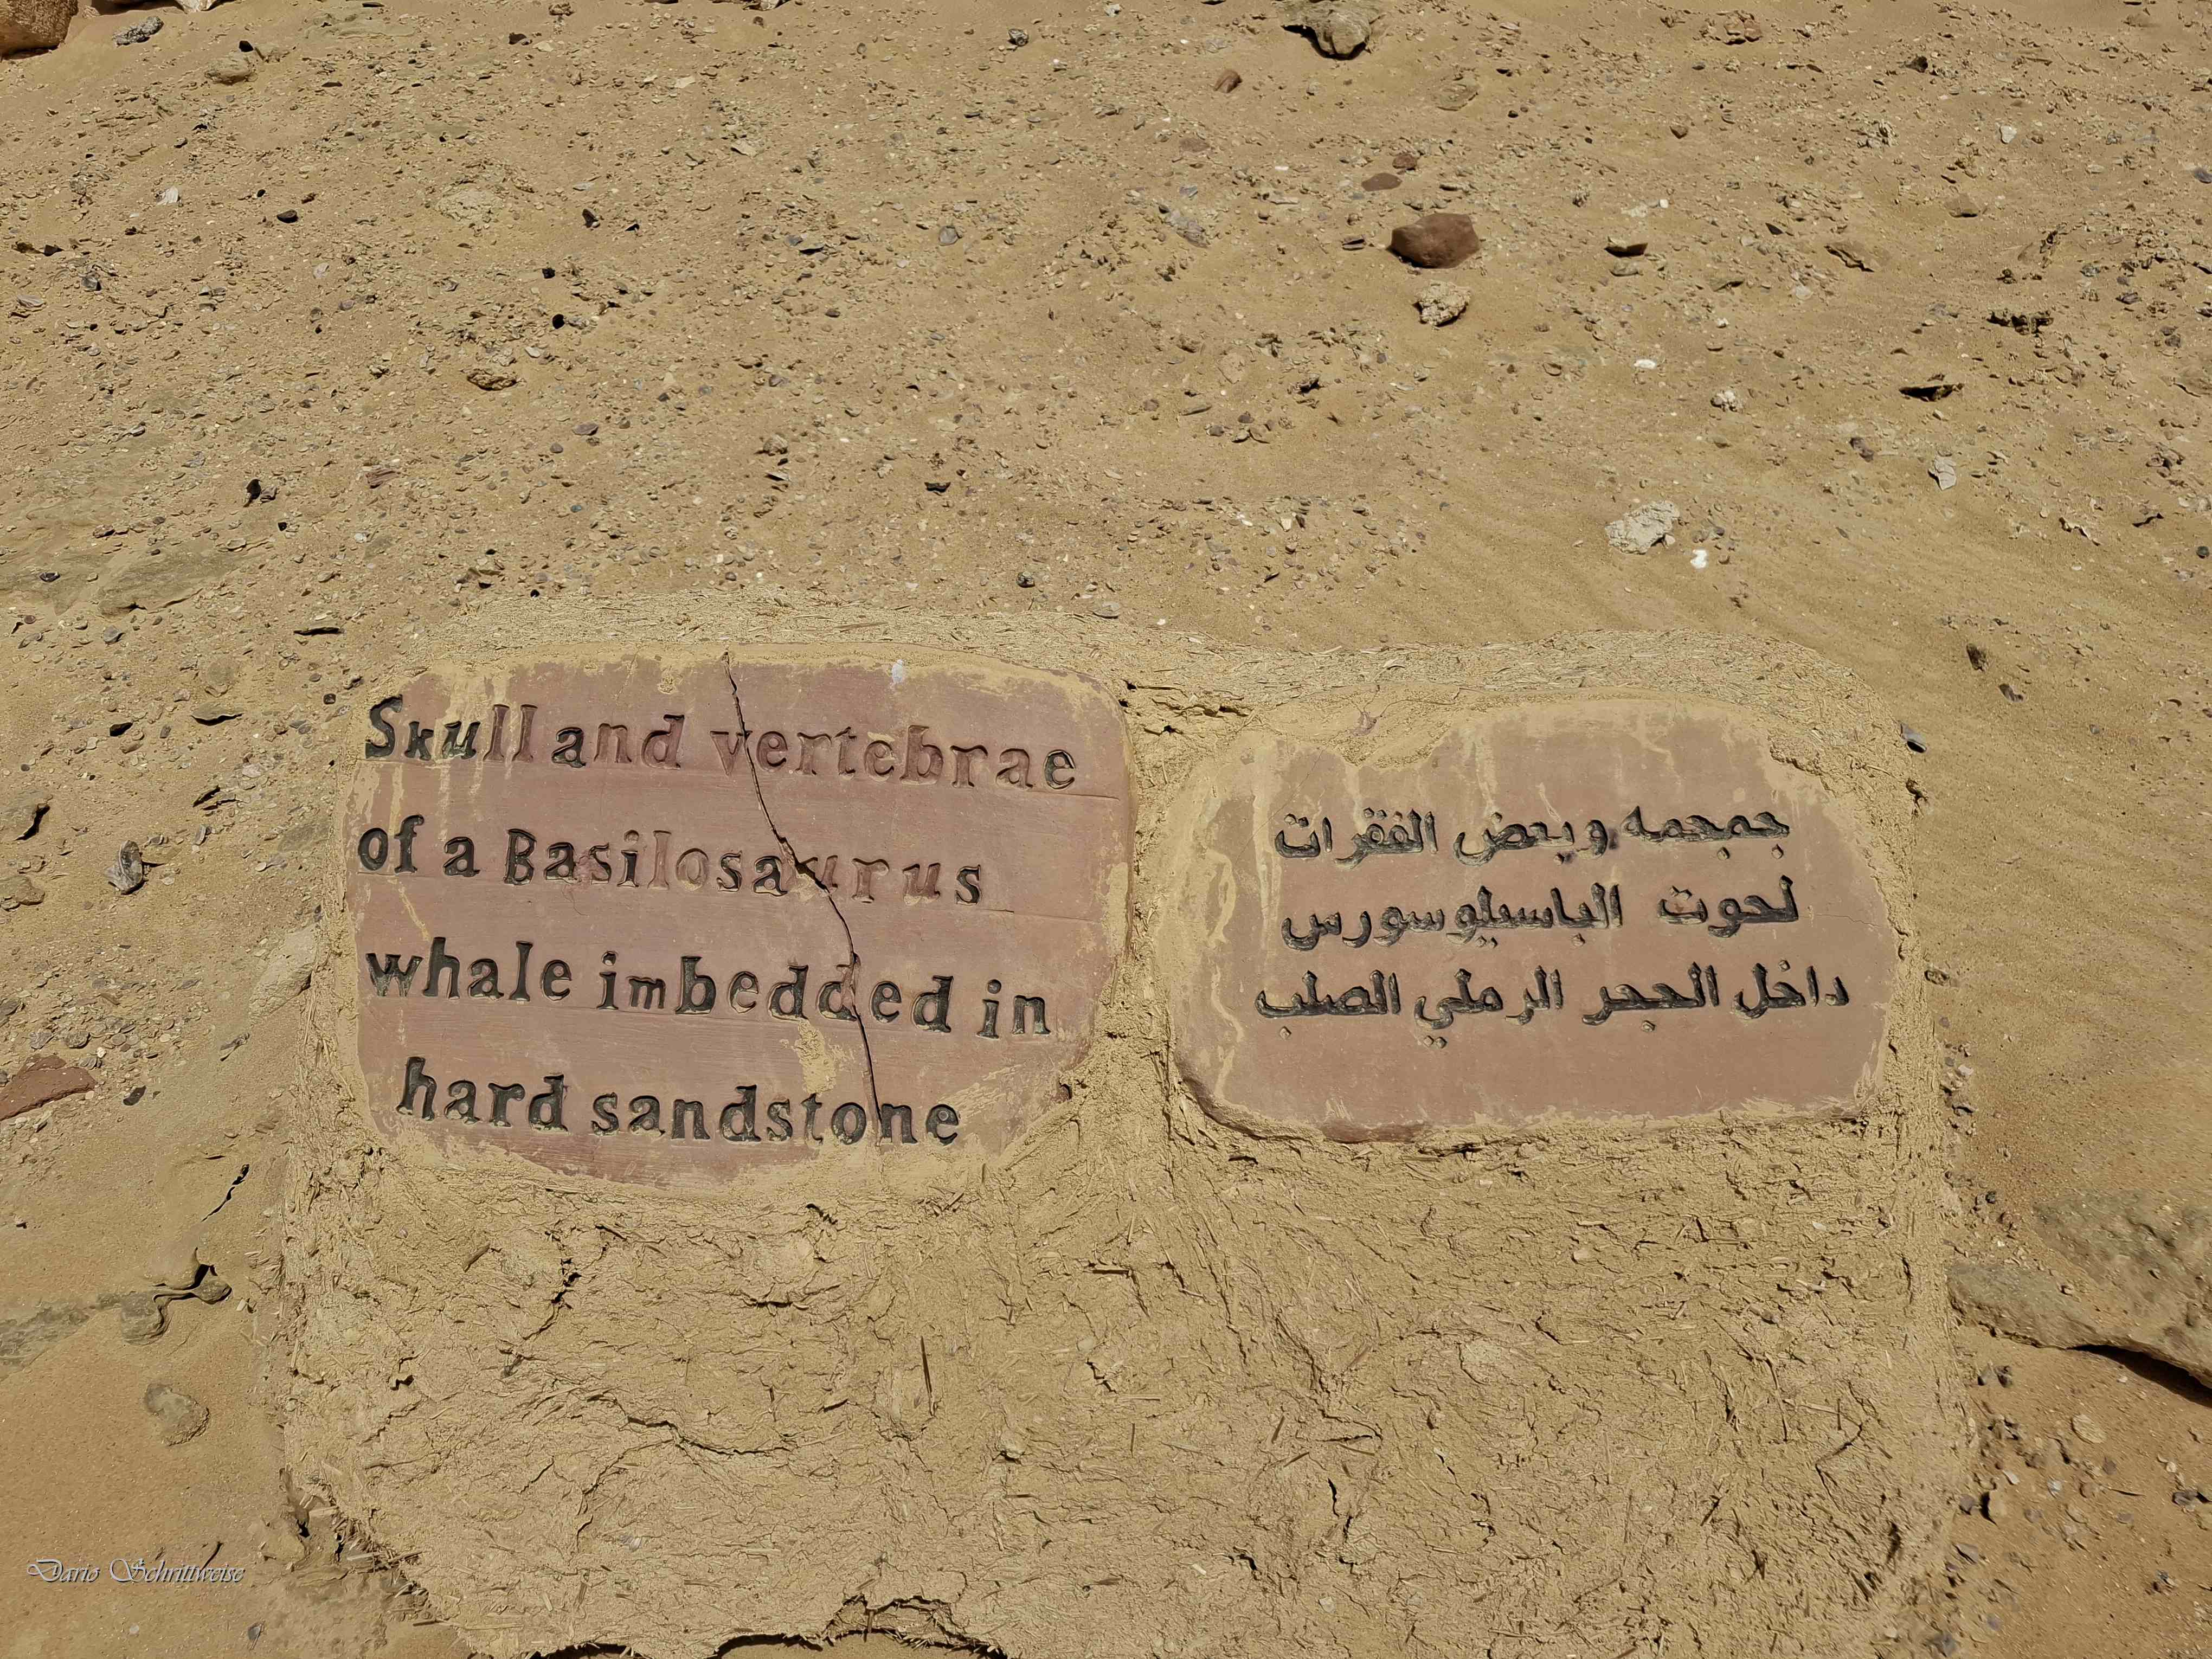 Skull and vertebrae
of a Basilosaurus
whale imbedded in
hard sandstone
جمجمه وبعض الفقرات
لحوت الباسيلوسورس
داخل الحجر الرملي الصلب
Dario Schrittweise